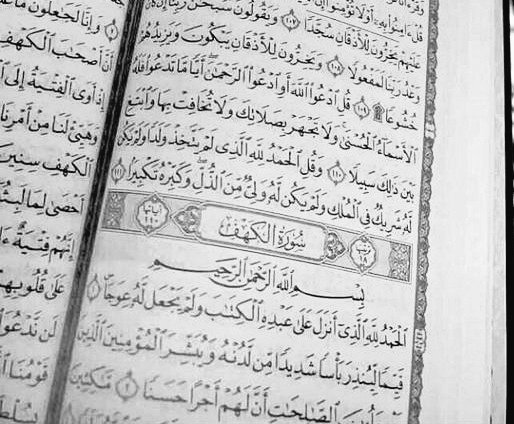 قُلْ ءَامِنُوا۟ بِهِۦٓ أَوْ لَا تُؤْمِنُوٓا۟
عَلَيْهِمْ يَخِرُّونَ لِلْأَذْقَانِ سُجَّدًا ١٠٧ وَيَقُولُونَ سُبْحَٰنَ رَبِّنَآ إِن كَانَ
وَعْدُ رَبِّنَا لَمَفْعُولًا ١٠٨ وَيَخِرُّونَ لِلْأَذْقَانِ يَبْكُونَ وَيَزِيدُهُمْ
خُشُوعًا ۩ ١٠٩ قُلِ ٱدْعُوا۟ ٱللَّهَ أَوِ ٱدْعُوا۟ ٱلرَّحْمَٰنَ أَيًّا مَّا تَدْعُوا۟ فَلَهُ
ٱلْأَسْمَآءُ ٱلْحُسْنَىٰ وَلَا تَجْهَرْ بِصَلَاتِكَ وَلَا تُخَافِتْ بِهَا وَٱبْتَغِ
بَيْنَ ذَٰلِكَ سَبِيلًا ١١٠ وَقُلِ ٱلْحَمْدُ لِلَّهِ ٱلَّذِى لَمْ يَتَّخِذْ وَلَدًا وَلَمْ يَكُن
لَّهُۥ شَرِيكٌ فِى ٱلْمُلْكِ وَلَمْ يَكُن لَّهُۥ وَلِىٌّ مِّنَ ٱلذُّلِّ وَكَبِّرْهُ تَكْبِيرًا ١١١
١٨ سُورَةُ ٱلْكَهْفِ آياتها ١١٠
بِسْمِ ٱللَّهِ ٱلرَّحْمَٰنِ ٱلرَّحِيمِ
ٱلْحَمْدُ لِلَّهِ ٱلَّذِىٓ أَنزَلَ عَلَىٰ عَبْدِهِ ٱلْكِتَٰبَ وَلَمْ يَجْعَل لَّهُۥ عِوَجَا ١
قَيِّمًا لِّيُنذِرَ بَأْسًا شَدِيدًا مِّن لَّدُنْهُ وَيُبَشِّرَ ٱلْمُؤْمِنِينَ ٱلَّذِينَ
ٱلصَّٰلِحَٰتِ أَنَّ لَهُمْ أَجْرًا حَسَنًا ٢ مَّٰكِثِينَ
وَإِنَّا لَجَٰعِلُونَ مَا
أَنَّ أَصْحَٰبَ ٱلْكَهْفِ
إِذْ أَوَى ٱلْفِتْيَةُ إِلَى
وَهَيِّئْ لَنَا مِنْ أَمْرِنَا
ٱلْكَهْفِ سِنِينَ
أَحْصَىٰ لِمَا لَبِثُوٓا۟
إِنَّهُمْ فِتْيَةٌ
عَلَىٰ قُلُوبِهِمْ
لَن نَّدْعُوَا۟
قَوْمُنَا